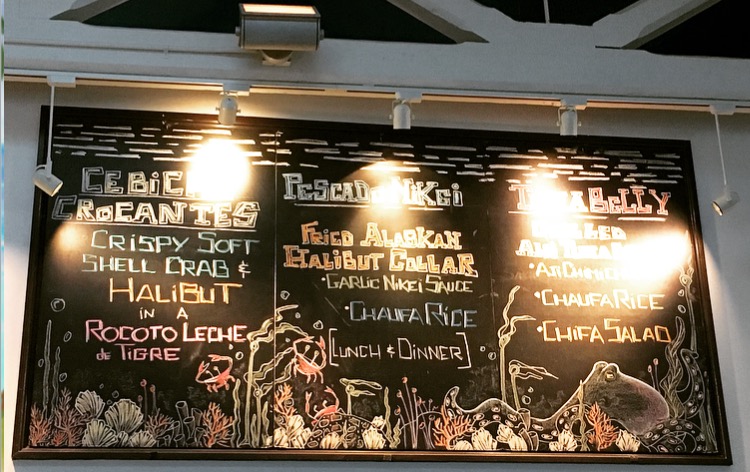 CROCANTES
CRISPY SOFT
SHELL CRAB &
HALIBUT
IN A
ROCOTO LECHE
de TIGRE
PESCADO NIKEI
FRIED ALASKAN
HALIBUT COLLAR
•GARLIC NIKEI SAUCE
•CHAUFA RICE
[LUNCH & DINNER]
BELLY
•CHAUFA RICE
•CHIFA SALAD